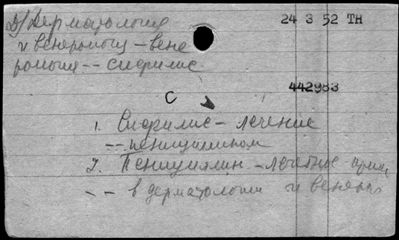 Д/Дерматология
24 3 52 TH
и венеролог – вене
рология -- сифилис
442983
C
1. Сифилис – лечение
-- пенициллином
2. Пенициллин – лечебное прим
-- в дерматологии и венер